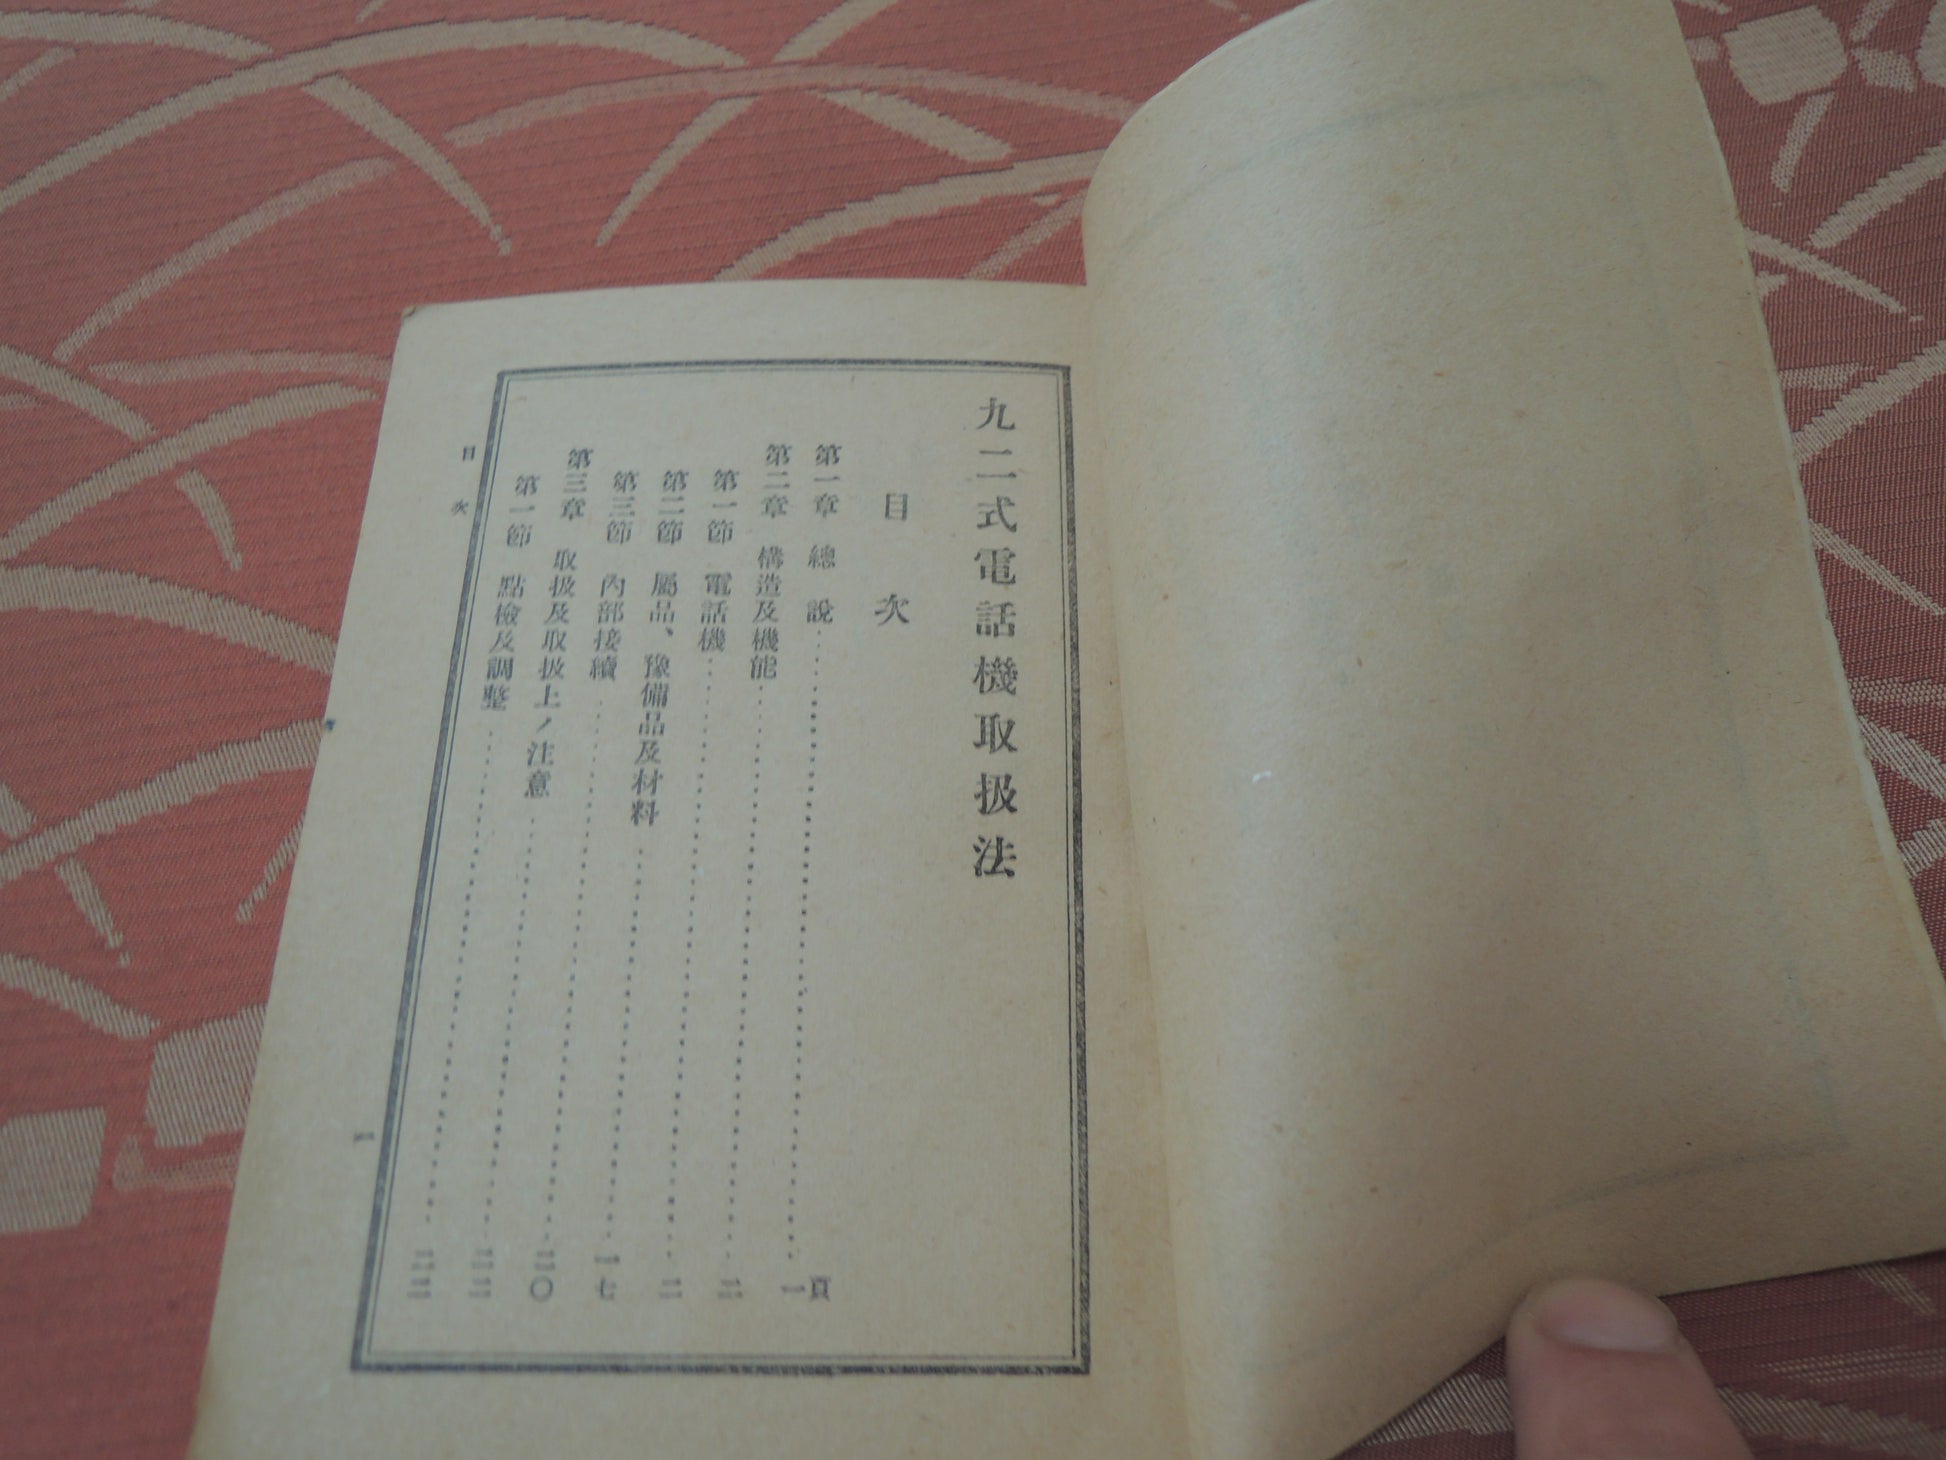 九二式電話機取扱法
目次
第一章 總說……一頁
第二章 構造及機能……二
第一節 電話機……二
第二節 屬品、豫備品及材料
第三節 內部接續……一七
第三章 取扱及取扱上ノ注意……二〇
第一節 點檢及調整
目次
一